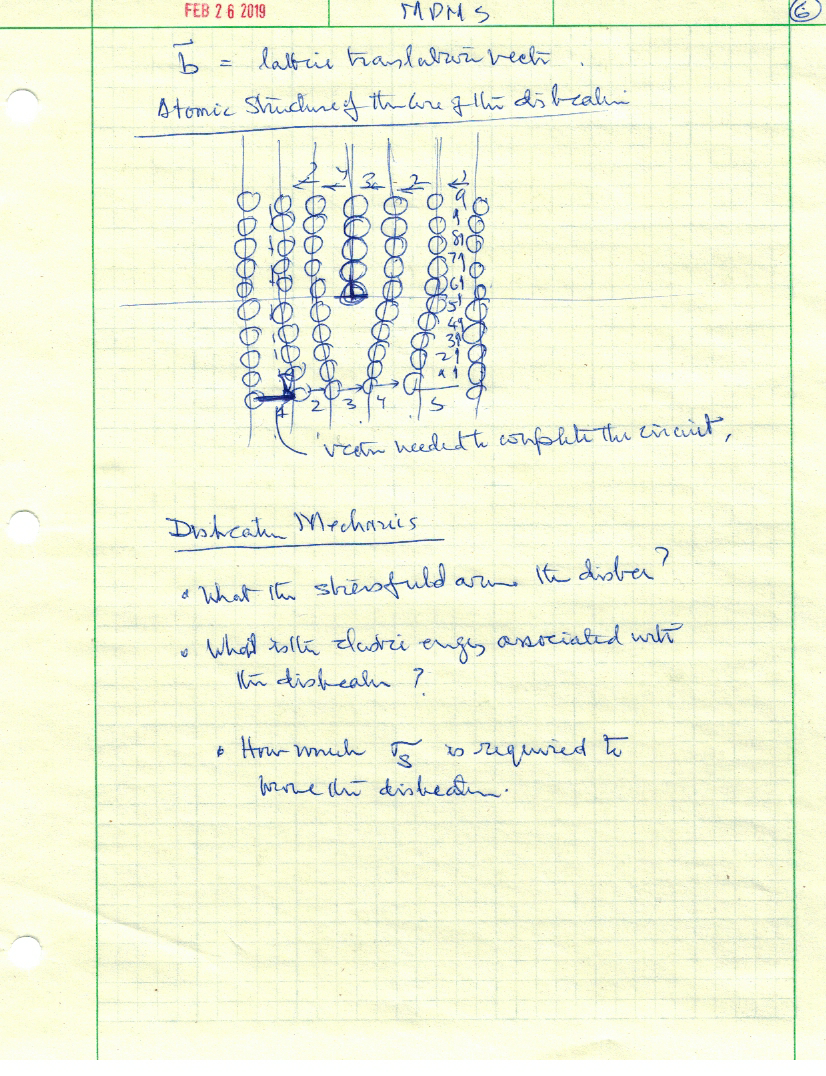 FEB 26 2019
MDMS
6
b = lattice translation vector.
Atomic Structure of the Core of the dislocation
3 2
9
8
7
6
5
4
3
2
1
2 3 4 5
vector needed to complete the circuit,
Dislocation Mechanics
• What the stress field around the disloc?
• What is the elastic energy associated with
the dislocation ?
• How much σs is required to
move the dislocation.